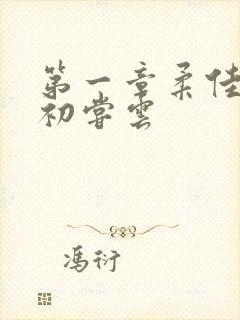 第一章柔佳
初尝雲
冯衍